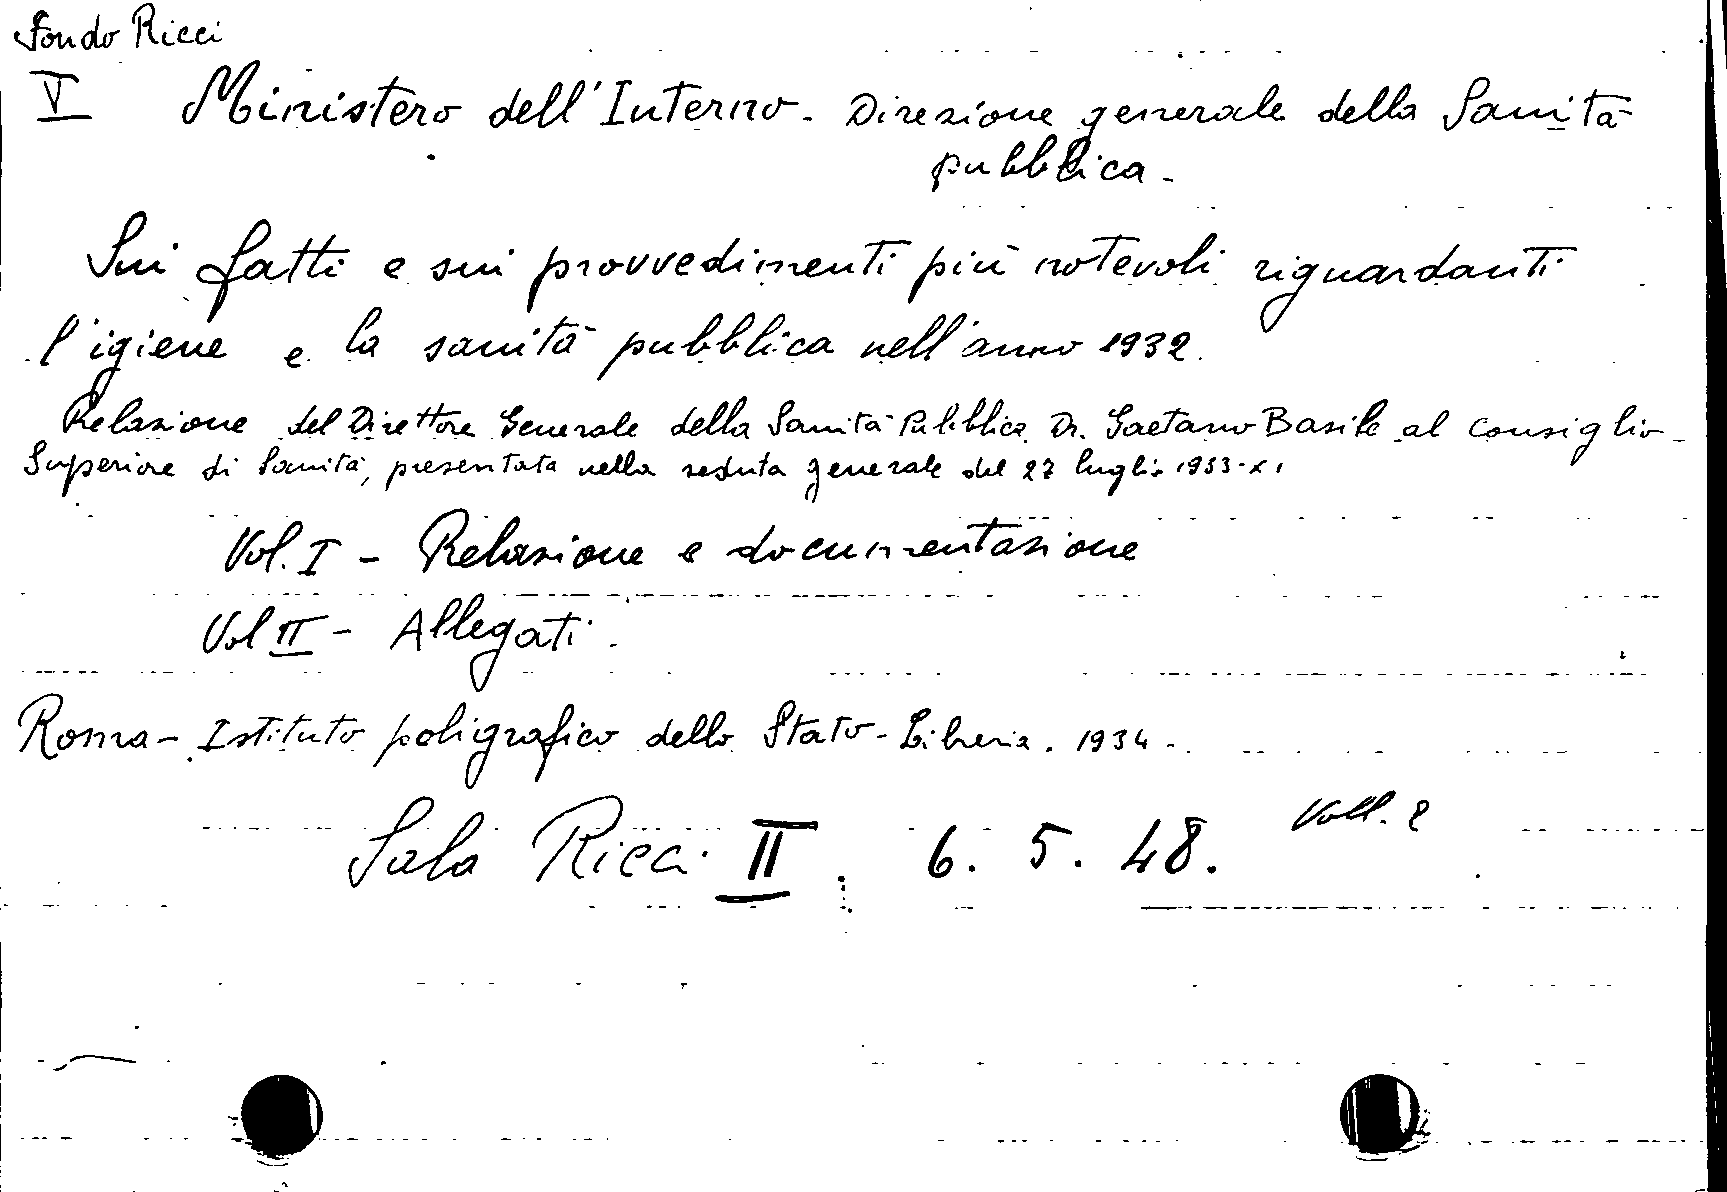 Fondo Ricci
V Ministero dell'Interno - Direzione generale della Sanità
pubblica -
Sui fatti e sui provvedimenti più notevoli riguardanti
l'igiene e la sanità pubblica nell'anno 1932.
Relazione del Direttore Generale della Sanità Pubblica Dr. Gaetano Basile al Consiglio
Superiore di Sanità, presentata nella seduta generale del 27 luglio 1933-XI
Vol. I - Relazione e documentazione
Vol II - Allegati.
Roma - Istituto poligrafico dello Stato - Libreria. 1934 -
Voll. 2
Sala Ricci II. 6. 5. 48.